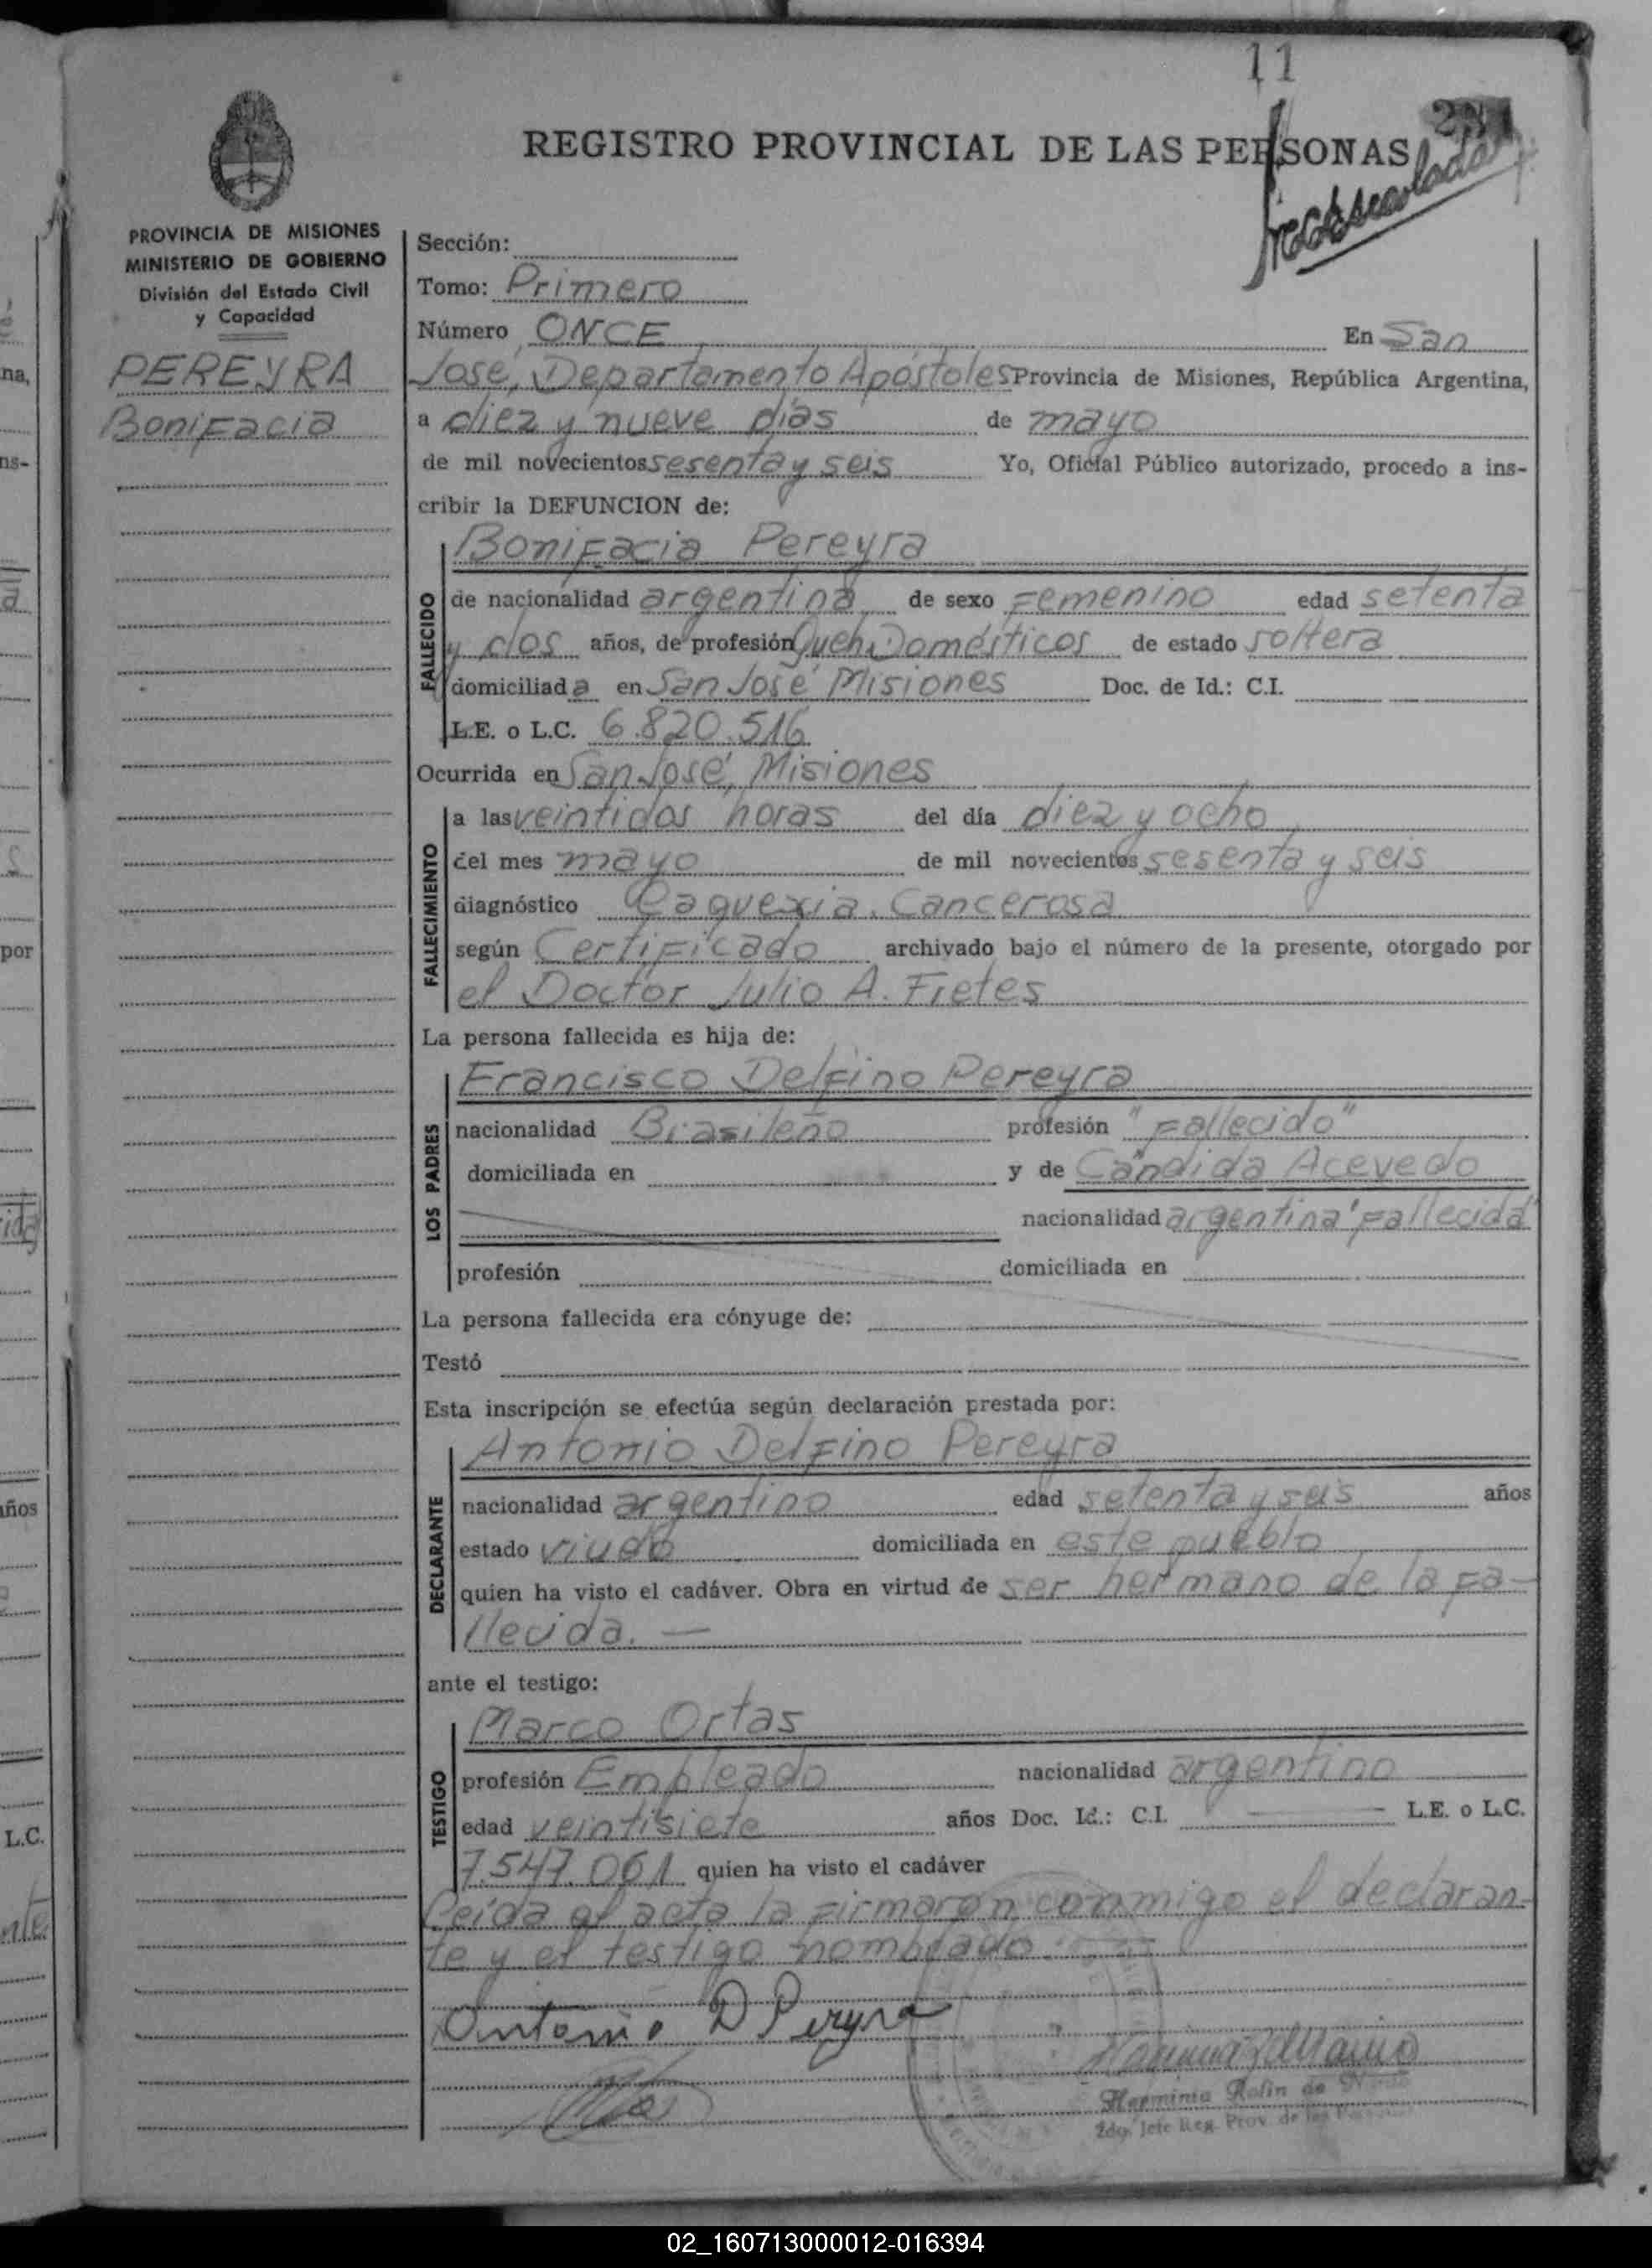 11
REGISTRO PROVINCIAL DE LAS PERSONAS
PROVINCIA DE MISIONES
MINISTERIO DE GOBIERNO
División del Estado Civil
y Capacidad
PEREYRA
Bonifacia
Sección:
Tomo: Primero
Número ONCE En San
José, Departamento Apóstoles Provincia de Misiones, República Argentina,
a diez y nueve días de mayo
de mil novecientos sesenta y seis Yo, Oficial Público autorizado, procedo a ins-
cribir la DEFUNCION de:
FALLECIDO
Bonifacia Pereyra
de nacionalidad argentina de sexo Femenino edad setenta
y dos años, de profesión Queh. Domésticos de estado soltera
domiciliada en San José Misiones Doc. de Id.: C.I.
L.E. o L.C. 6.820.516
Ocurrida en San José, Misiones
FALLECIMIENTO
a las veintidos horas del día diez y ocho
del mes mayo de mil novecientos sesenta y seis
diagnóstico Caquexia. Cancerosa
según Certificado archivado bajo el número de la presente, otorgado por
el Doctor Julio A. Fretes
La persona fallecida es hija de:
LOS PADRES
Francisco Delfino Pereyra
nacionalidad Brasileño profesión "Fallecido"
domiciliada en y de Cándida Acevedo
nacionalidad argentina "Fallecida"
profesión domiciliada en
La persona fallecida era cónyuge de:
Testó
Esta inscripción se efectúa según declaración prestada por:
DECLARANTE
Antonio Delfino Pereyra
nacionalidad argentino edad setenta y seis años
estado viudo domiciliada en este pueblo
quien ha visto el cadáver. Obra en virtud de ser hermano de la fa-
llecida. —
ante el testigo:
TESTIGO
Marco Ortas
profesión Empleado nacionalidad argentino
edad veintisiete años Doc. Id.: C.I. L.E. o L.C.
7.547.061 quien ha visto el cadáver
Leída el acta la firmaron conmigo el declaran-
te y el testigo nombrado.
Antonio D Pereyra
Herminia Rolin de
2do. Jefe Reg. Prov. de las Personas
na,
ns-
por
años
L.C.
02_160713000012-016394